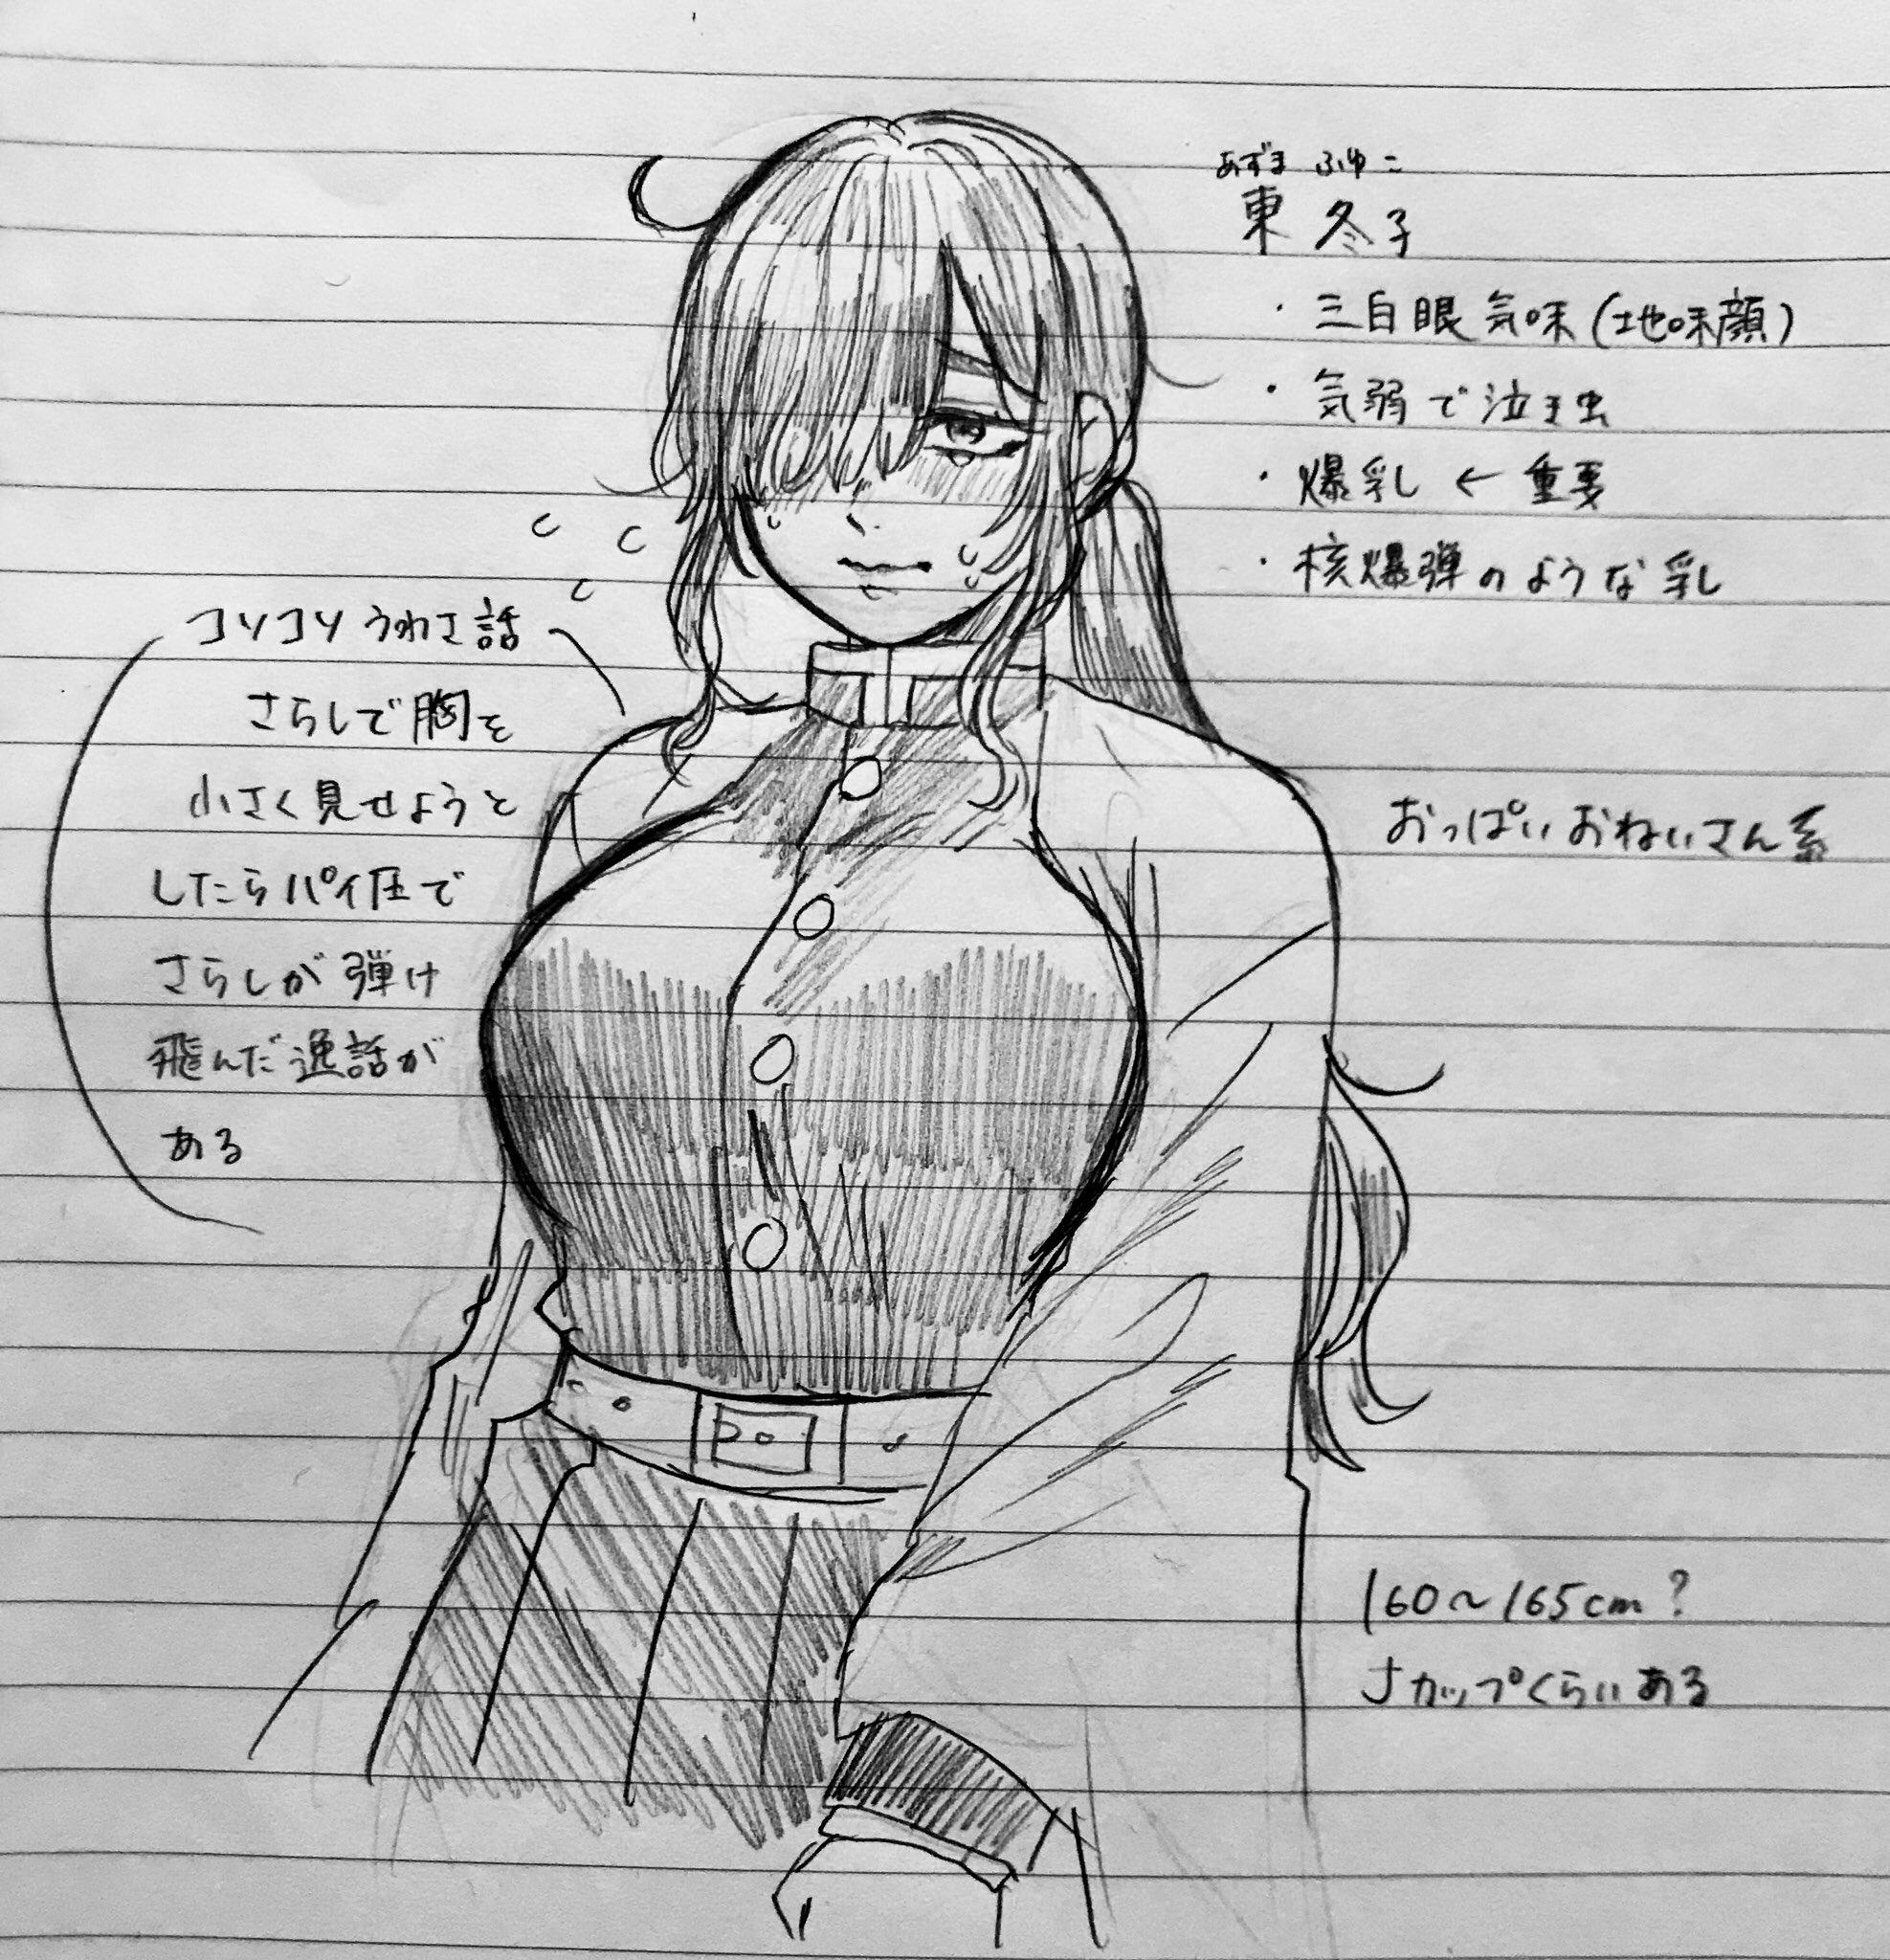 あずま ふゆこ
東 冬子
・三白眼気味(地味顔)
・気弱で泣き虫
・爆乳 ← 重要
・核爆弾のような乳
コソコソうわさ話
さらしで胸を
小さく見せようと
したらパイ圧で
さらしが弾け
飛んだ逸話が
ある
おっぱいおねいさん系
160〜165cm?
Jカップくらいある